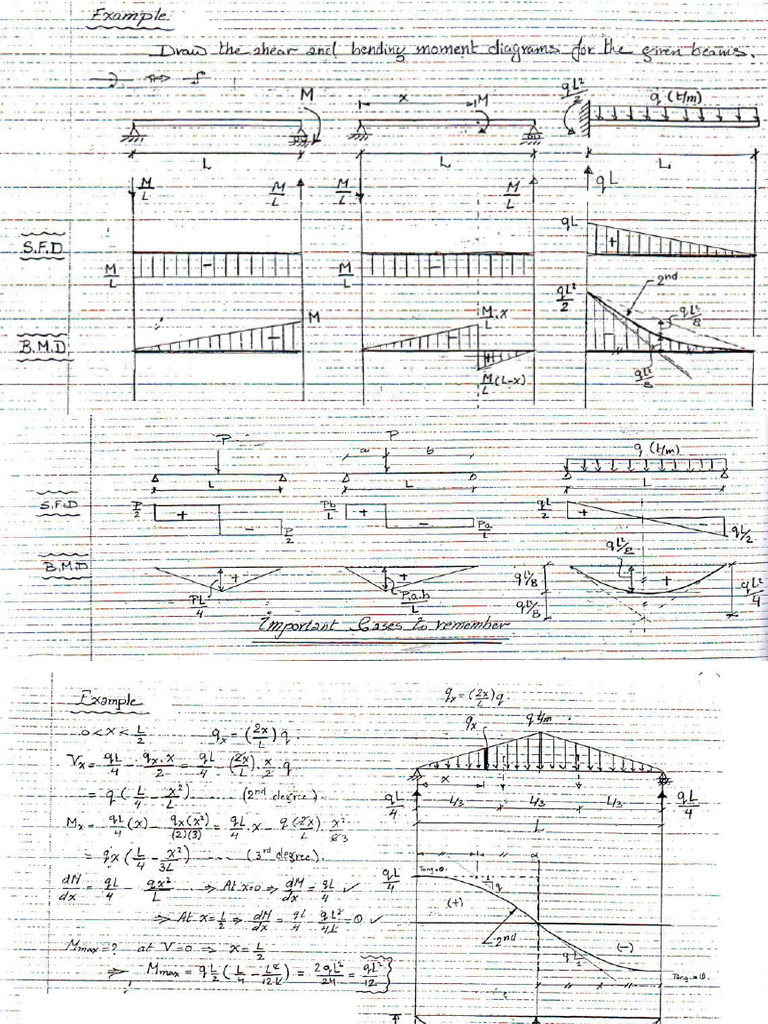 Example
Draw the shear and bending moment diagrams for the given beams.
M
x
M
qL²/2
q (t/m)
L
L
L
M/L
M/L
M/L
M/L
qL
S.F.D
M/L
-
M/L
-
qL
+
B.M.D
M
-
M/L.x
-
+
M/L(L-x)
qL²/2
-
2nd
qL²/8
qL²/8
P
P
a
b
q (t/m)
L
L
L
S.F.D
P/2
+
-
P/2
Pb/L
+
-
Pa/L
qL/2
+
-
qL/2
B.M.D
+
PL/4
+
P.a.b/L
qL²/8
qL²/8
qL²/8
+
qL²/4
Important Cases to remember
Example
qx = (2x/L)q.
0<x<L/2
qx = (2x/L)q.
qx
q t/m
Vx = qL/4 - qx.x/2 = qL/4 - (2x/L).x/2.q
= q(L/4 - x²/L) ..... (2nd degree).
x
L/3
L/3
L/3
qL/4
qL/4
L
Mx = qL/4(x) - qx(x²)/(2)(3) = qL/4.x - q(2x)/L.x²/6
= qx(L/4 - x²/3L) ..... (3rd degree).
dM/dx = qL/4 - qx²/L ⇒ At x=0 ⇒ dM/dx = qL/4 ✓
⇒ At x=L/2 ⇒ dM/dx = qL/4 - qL²/4L = 0 ✓
Mmax=? at V=0 ⇒ x=L/2
⇒ Mmax = qL/2(L/4 - L²/12L) = 2qL²/24 = qL²/12
qL/4
(+)
2nd
(-)